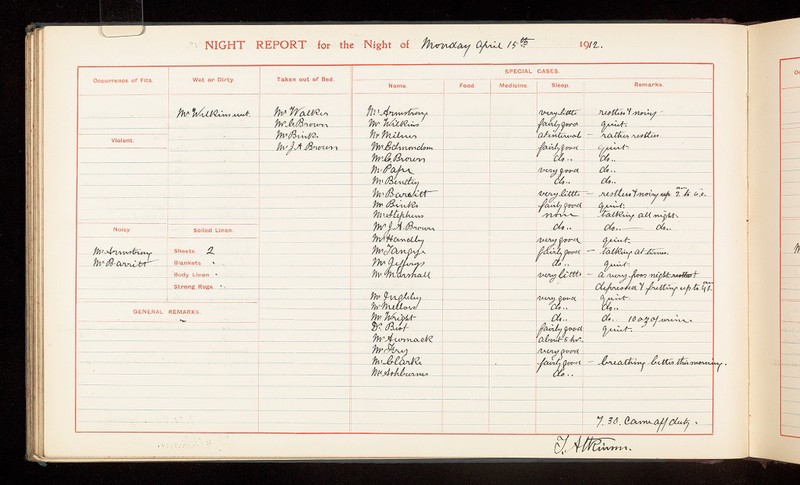 NIGHT REPORT for the Night of Monday April 15th 1912.
Occurrence of Fits.
Wet or Dirty.
Taken out of Bed.
SPECIAL CASES.
Name.
Food
Medicine.
Sleep.
Remarks.
Mr Wilkins wet.
Mr Walker
Mr C Brown
Mr Binks
Mr J A Brown
Violent.
Noisy.
Mr Armstrong
Mr Barritt
Soiled Linen.
Sheets 2
Blankets
Body Linen
Strong Rugs
GENERAL REMARKS.
Mr Armstrong very little restless & noisy
Mr Wilkins fairly good quiet.
Mr Milner at intervals - rather restless
Mr Edmondson fairly good quiet
Mr C Brown do.. do..
Mr very good do..
Mr Bentley do.. do..
Mr Barritt very little - restless & noisy up
Mr Binks fairly good quiet.
Mr Stephens none talking all night.
Mr J. A. Brown do.. do.. do..
Mr Handby very good quiet.
Mr fairly good - talking at times.
Mr Jeffrys do.. quiet
Mr Marshall very little - a very poor night
depressed & fretting up to
Mr very good quiet
Mr Mellors do.. do..
Mr Wright do.. do. 10 oz of urine.
Dr. fairly good quiet.
Mr about 5 hr.
Mr very good
Mr Clarke fairly good - breathing better this morning.
Mr Ashburner do..
7.30. Came off duty.
T. Atkinson.